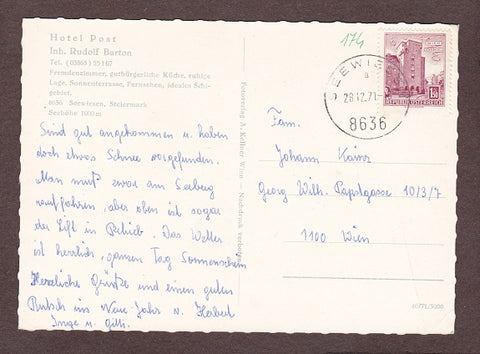 Hotel Post
Inh. Rudolf Barton
Tel. (03863) 251 07
Fremdenzimmer, gutbürgerliche Küche, ruhige
Lage, Sonnenterrasse, Fernsehen, ideales Schi-
gebiet.
8636 Seewiesen, Steiermark
Seehöhe 1000 m
Sind gut angekommen u. haben
doch etwas Schnee vorgefunden.
Man muß zwar am Seeberg
rauffahren, aber oben ist sogar
der Lift in Betrieb. Das Wetter
ist herrlich, ganzen Tag Sonnenschein
Herzliche Grüße und einen guten
Rutsch ins Neue Jahr v. Herbert
Inge u. Gitti.
Fotoverlag A. Kellner Wien — Nachdruck verboten
174
SEEWIES
a
28.12.71
8636
REPUBLIK ÖSTERREICH
Fam.
Johann Kainz
Georg Wilh. Pabstgasse 10/3/7
1100 Wien